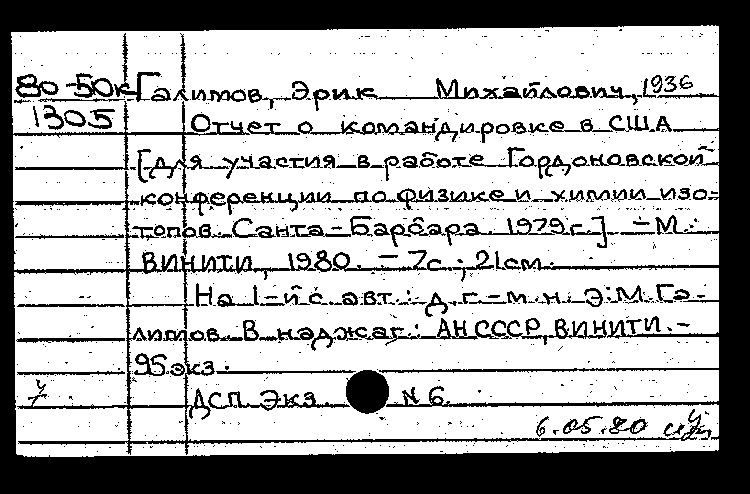 80-50к Галимов, Эрик Михайлович, 1936
1305 Отчет о командировке в США
[для участия в работе Гордоновской
конференции по физике и химии изо-
топов. Санта-Барбара 1979г.] - М.:
ВИНИТИ, 1980. - 7с.; 21см.
На 1-й с. авт.: д.г.-м.н. Э.М. Га-
лимов. В наджаг.: АН СССР, ВИНИТИ. -
95 экз.
ДСП. Экз. N 6.
6.05.80